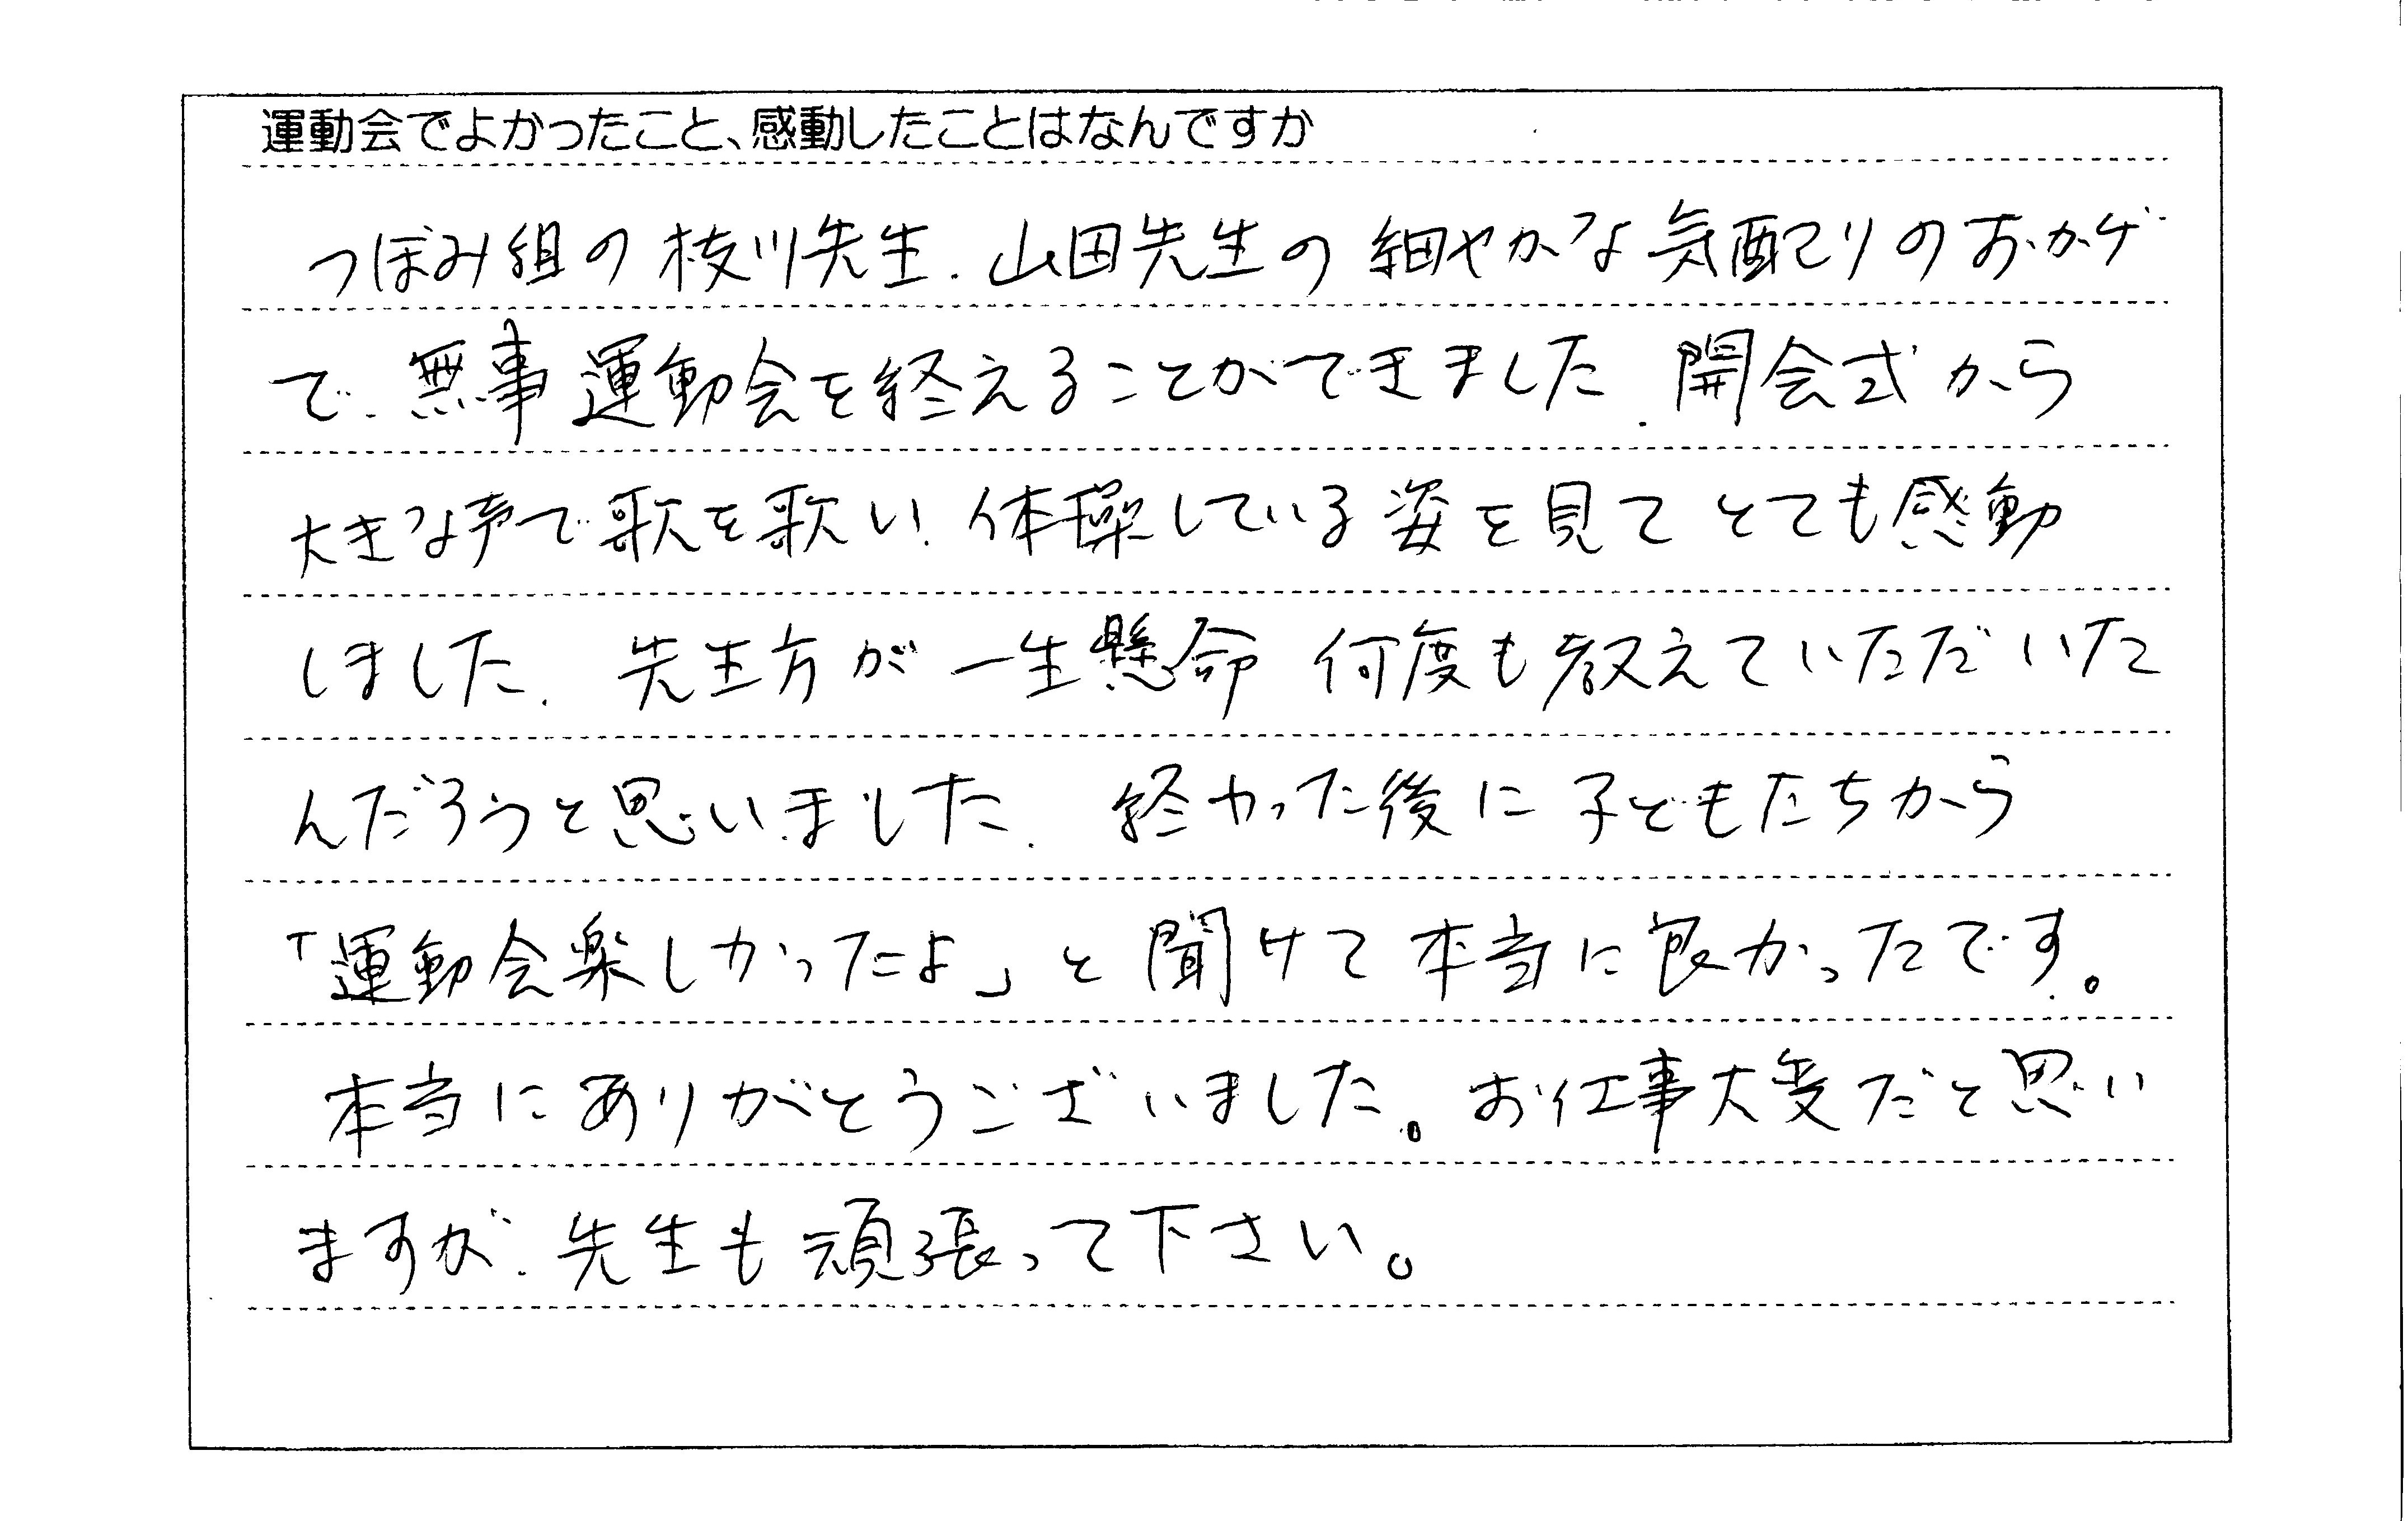 運動会でよかったこと、感動したことはなんですか
つぼみ組の枝川先生.山田先生の細やかな気配りのおかげ
で.無事運動会を終えることができました.開会式から
大きな声で歌を歌い.体操している姿を見てとても感動
しました.先生方が一生懸命何度も教えていただいた
んだろうと思いました.終わった後に子どもたちから
「運動会楽しかったよ」と聞けて本当に良かったです。
本当にありがとうございました。お仕事大変だと思い
ますが.先生も頑張って下さい。